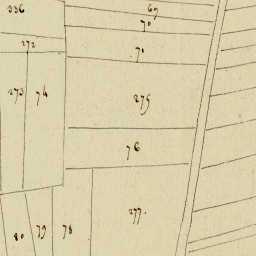 336
69
70
272
71
273
74
275
76
277.
80
79
78